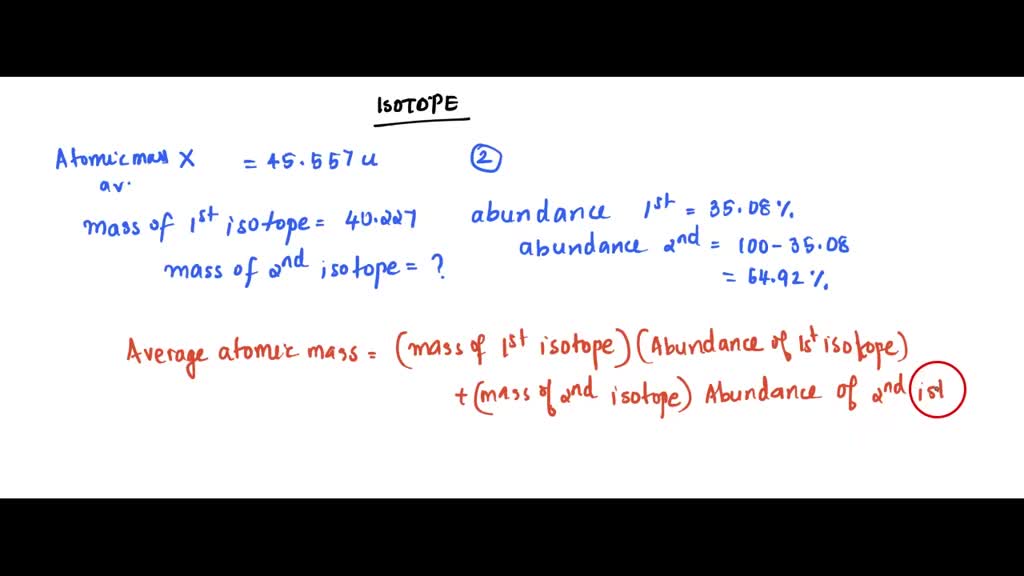 ISOTOPE
Atomic mass X = 45.557 u ②
av.
mass of 1st isotope = 40.227 abundance 1st = 35.08%
abundance 2nd = 100-35.08
mass of 2nd isotope = ? = 64.92%
Average atomic mass = (mass of 1st isotope) (Abundance of 1st isotope)
+ (mass of 2nd isotope) Abundance of 2nd ist